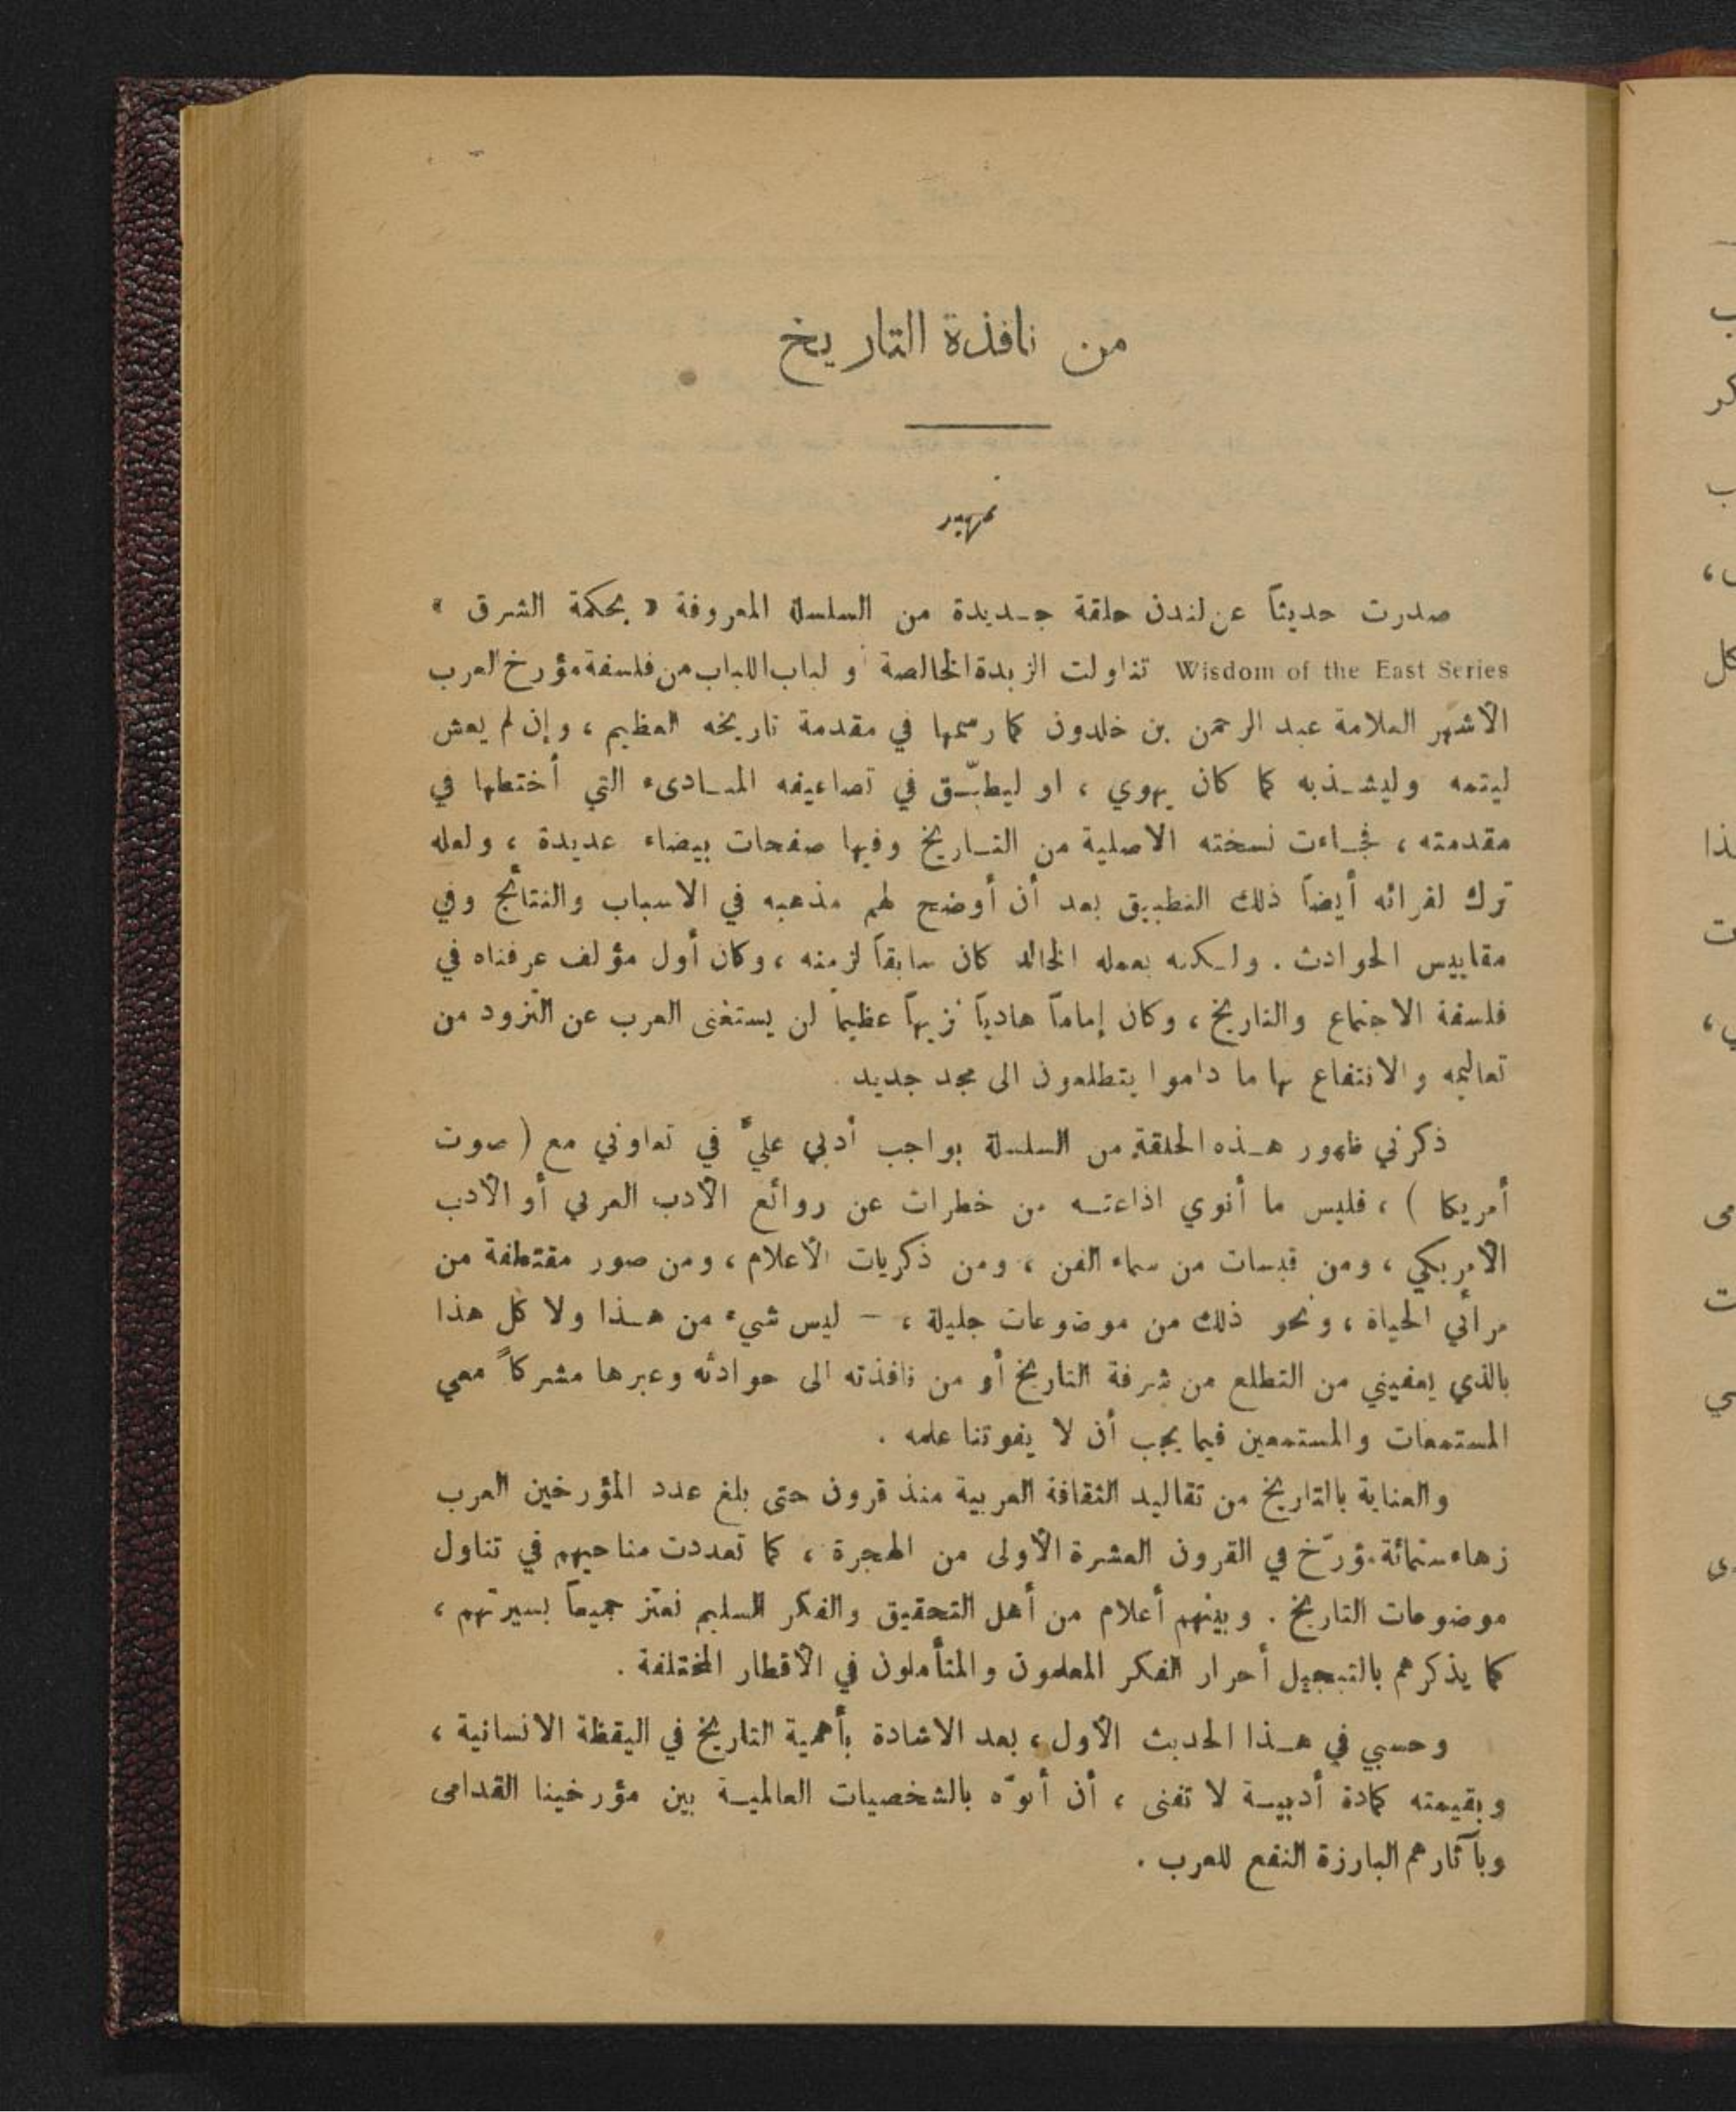 من نافذة التاريخ
تمهيد
صدرت حديثاً عن لندن حلقة جديدة من السلسلة المعروفة « بحكمة الشرق »
Wisdom of the East Series تناولت الزبدة الخالصة أو لباب اللباب من فلسفة مؤرخ العرب
الأشهر العلامة عبد الرحمن بن خلدون كما رسمها في مقدمة تاريخه العظيم ، وإن لم يعش
ليتمه وليشذبه كما كان يهوي ، او ليطبّق في تضاعيفه المبادىء التي أختطها في
مقدمته ، فجاءت نسخته الاصلية من التاريخ وفيها صفحات بيضاء عديدة ، ولعله
ترك لقرائه أيضاً ذلك التطبيق بعد أن أوضح لهم مذهبه في الاسباب والنتائج وفي
مقاييس الحوادث . ولكنه بعمله الخالد كان سابقاً لزمنه ، وكان أول مؤلف عرفناه في
فلسفة الاجتماع والتاريخ ، وكان إماماً هادياً نزيهاً عظيماً لن يستغنى العرب عن التزود من
تعاليمه والانتفاع بها ما داموا يتطلعون الى مجد جديد .
ذكرني ظهور هذه الحلقة من السلسلة بواجب أدبي عليَّ في تعاوني مع ( صوت
أمريكا ) ، فليس ما أنوي اذاعته من خطرات عن روائع الأدب العربي أو الأدب
الأمريكي ، ومن قبسات من سماء الفن ، ومن ذكريات الأعلام ، ومن صور مقتطفة من
مرائي الحياة ، ونحو ذلك من موضوعات جليلة ، – ليس شيء من هذا ولا كل هذا
بالذي يعفيني من التطلع من شرفة التاريخ أو من نافذته الى حوادثه وعبرها مشركاً معي
المستمعات والمستمعين فيما يجب أن لا يفوتنا علمه .
والعناية بالتاريخ من تقاليد الثقافة العربية منذ قرون حتى بلغ عدد المؤرخين العرب
زهاء ستمائة مؤرّخ في القرون العشرة الأولى من الهجرة ، كما تعددت مناحيهم في تناول
موضوعات التاريخ . وبينهم أعلام من أهل التحقيق والفكر السليم نعتز جميعاً بسيرتهم ،
كما يذكرهم بالتبجيل أحرار الفكر المعلمون والمتأملون في الأقطار المختلفة .
وحسبي في هذا الحديث الأول ، بعد الاشادة بأهمية التاريخ في اليقظة الانسانية ،
وبقيمته كمادة أدبية لا تفنى ، أن أنوّه بالشخصيات العالمية بين مؤرخينا القدامى
وبآثارهم البارزة النفع للعرب .